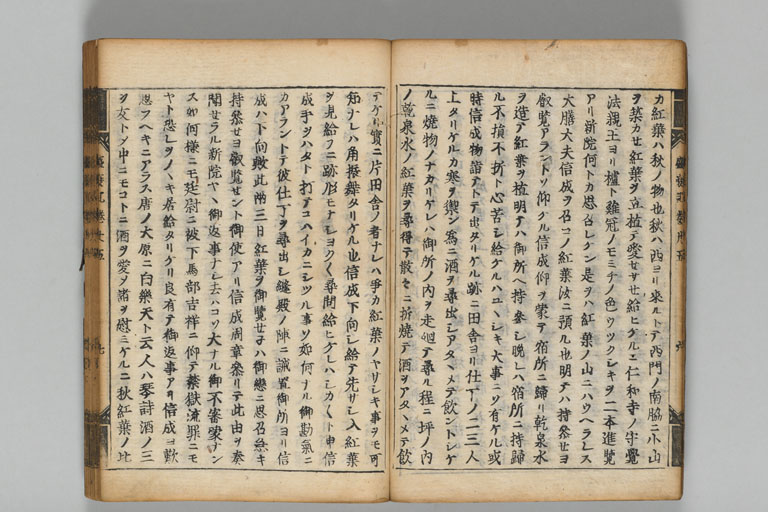 カ紅葉ハ秋ノ物也秋ハ西ヨリ來ルトテ西門ノ南脇ニ小山
ヲ築カせ紅葉ヲ立植テ愛せサせ給ヒケルニ仁和寺ノ守覺
法親王ヨリ櫨ト雞冠ノモミチノ色ウツクシキヲ二本進覽
アリ新院何トカ思召レケン是ヲハ紅葉ノ山ニハウヘラレス
大膳大夫信成ヲ召テノ紅葉汝ニ預ル也明テハ持參せヨ
叡覽アラントソ仰ケル信成仰ヲ蒙テ宿所ニ歸リ乾泉水
ヲ造テ紅葉ヲ植明テハ御所ヘ持參シ晩レハ宿所ニ持歸
ル不損不折ト心苦シ給ケルハユヽシキ大事ニソ有ケル或
時信成物詣テトテ出タリケル跡ニ田舎ヨリ仕丁ノ二三人
上タリケルカ寒ヲ禦ン爲ニ酒ヲ尋出シアタヽメテ飲ントシケ
ルニ焼物ノナカリケレハ御所ノ内ヲ走廻テ尋ル程ニ坪ノ内
ノ乾泉水ノ紅葉ヲ尋得テ散々ニ折焼テ酒ヲアタヽメテ飲
テケリ實ニ片田舎ノ者ナレハ爭カ紅葉ノヤサシキ事ヲモ可
知ナレハ角振舞タリケル也信成下向シ給テ先サシ入紅葉
ヲ見給フニ跡形モナシヨクヽ尋問給ヒケレハシカヽト申信
成手ヲハタト打アコハイカニシツル事ソ如何ナル御勘氣ニ
カアラントテ彼仕丁ヲ尋出シ縫殿ノ陣ニ誡置御所ヨリ信
成ハ下向歟此兩三日紅葉ヲ御覽せネハ御戀ニ思召急キ
持參せヨ叡覽せント御使アリ信成周章參リテ此由ヲ奏
聞せラル新院ヤヽ御返事ナシ去ハコソ大ナル御不審蒙ナン
ス如何様ニモ廷尉ニ被下馬部吉祥ニ仰テ禁獄流罪ニモ
ヤト恐レヲノヽキ居給タリケリ良有テ御返事アリ信成ヨ歎
思フヘキニアラス唐ノ大原ニ白樂天ト云人ハ琴詩酒ノ三
ヲ友トソ中ニモコトニ酒ヲ愛ヲ諸ヲ慰ミケルニ秋紅葉ノ比